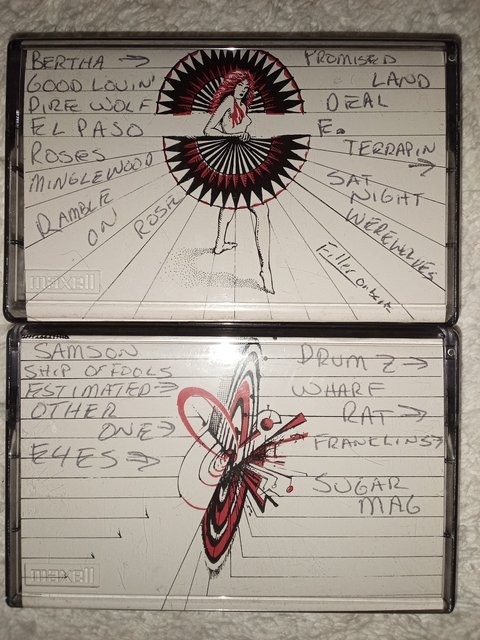 BERTHA →
GOOD LOVIN'
DIRE WOLF
EL PASO
ROSES
MINGLEWOOD
RAMBLE
ON
ROSE
PROMISED
LAND
DEAL
E.
TERRAPIN
→
SAT
NIGHT
WEREWOLVES
maxell
SAMSON
SHIP OF FOOLS
ESTIMATED →
OTHER
ONE →
EYES →
DRUMZ →
WHARF
RAT →
FRANKLINS →
SUGAR
MAG
maxell